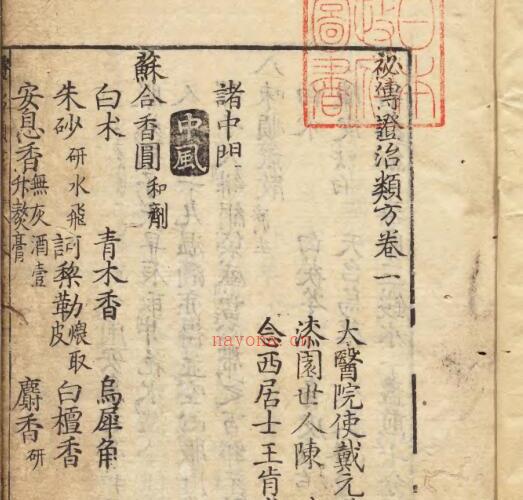 日本
政府
圖書
祕傳證治類方卷一
太醫院使戴元
漆園世人陳
念西居士王肯
諸中門
中風
蘇合香圓 和劑
白朮 青木香 烏犀角
朱砂 研水飛 訶黎勒 煨取皮 白檀香
安息香 無灰酒壹升熬膏 麝香 研
nayona.cn